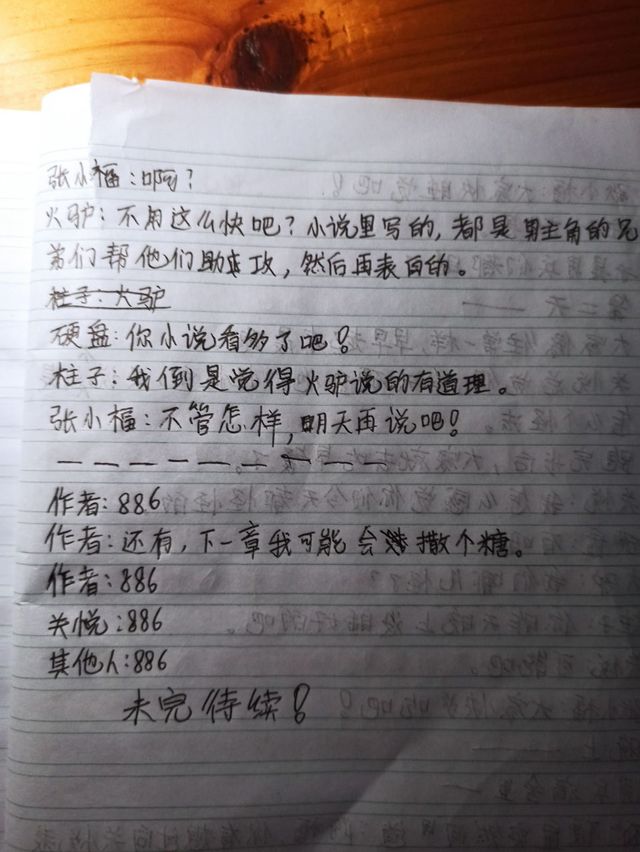 张小福：啊？
火驴：不用这么快吧？小说里写的，都是男主角的兄
弟们帮他们助攻，然后再表白的。
柱子：火驴
硬盘：你小说看够了吧！
柱子：我倒是觉得火驴说的有道理。
张小福：不管怎样，明天再说吧！
—————————
作者：886
作者：还有，下一章我可能会撒个糖。
作者：886
关悦：886
其他人：886
未完待续！